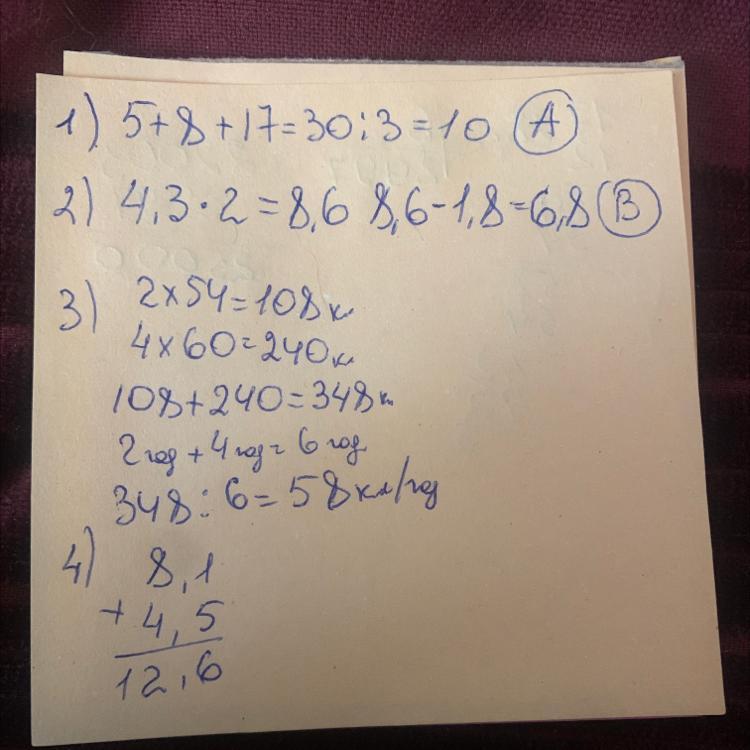 1) 5+8+17=30:3=10 А
2) 4,3·2=8,6 8,6-1,8=6,8 В
3) 2×54=108км
4×60=240км
108+240=348км
2год+4год=6год
348:6=58км/год
4) 8,1
+4,5
12,6